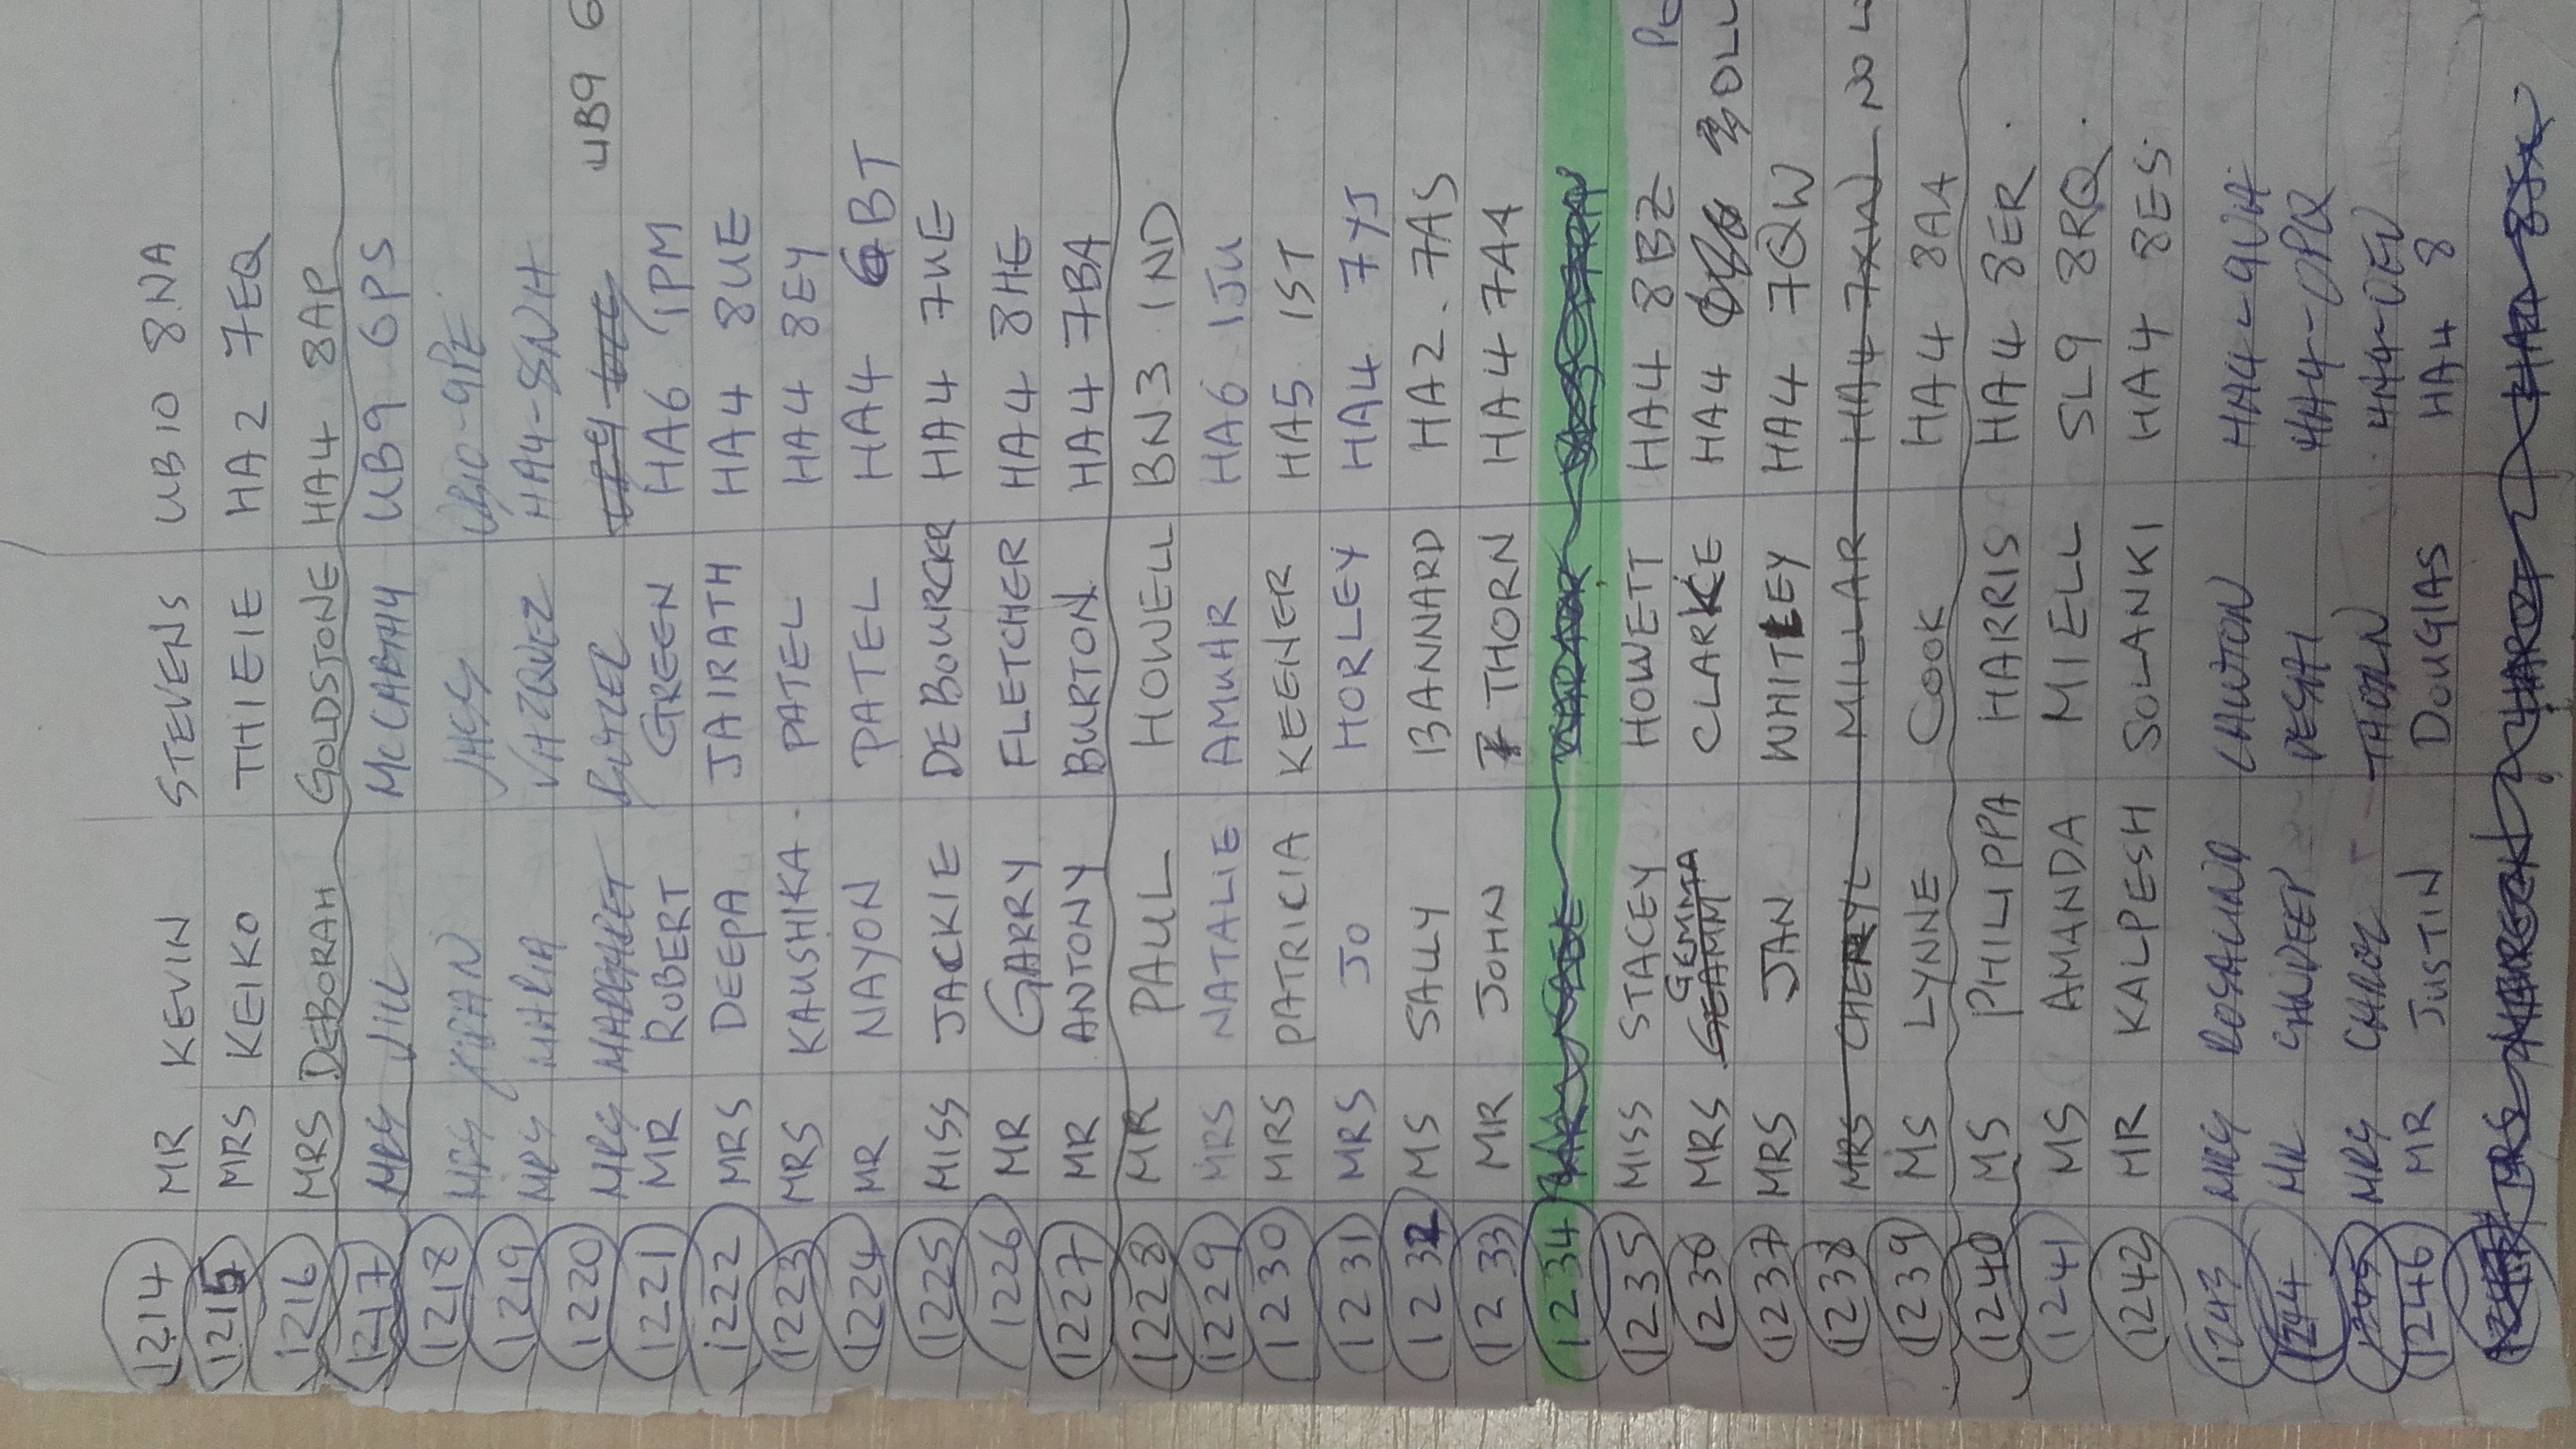 1214 MR KEVIN STEVENS UB10 8NA
1215 MRS KEIKO THIEIE HA2 7EQ
1216 MRS DEBORAH GOLDSTONE HA4 8AP
1217 MRS JILL MCCARTHY UB9 6PS
1218 MRS KIRAN JASS UB10-9PE
1219 MRS MARIA VAZQUEZ HA4-8NH
1220 MRS MARGARET BUTLER UB9 6
1221 MR ROBERT GREEN HA6 1PM
1222 MRS DEEPA JAIRATH HA4 8UE
1223 MRS KAUSHIKA PATEL HA4 8EY
1224 MR NAYON PATEL HA4 6BT
1225 MISS JACKIE DEBOURCKER HA4 7UE
1226 MR GARRY FLETCHER HA4 8HE
1227 MR ANTONY BURTON HA4 7BA
1228 MR PAUL HOWELL BN3 1ND
1229 MRS NATALIE AMUAR HA6 1JU
1230 MRS PATRICIA KEENER HA5 1ST
1231 MRS JO HORLEY HA4 7YJ
1232 MS SALLY BANNARD HA2. 7AS
1233 MR JOHN THORN HA4 7AA
1234
1235 MISS STACEY HOWETT HA4 8BZ
GEMMA
1236 MRS GEAMM CLARKE HA4 0LL
1237 MRS JAN WHITLEY HA4 7QW
1238 MRS CHERYL MILLAR HA4 7XW NO
1239 MS LYNNE COOK HA4 8AA
1240 MS PHILIPPA HARRIS HA4 8ER
1241 MS AMANDA MIELL SL9 8RQ
1242 MR KALPESH SOLANKI HA4 8ES
1243 MRS ROSALIND LAWTON HA4-9UA
1244 MR SANDEEP DESAI HA4-0PQ
1245 MRS CAROL THORN HA4-0EU
1246 MR JUSTIN DOUGLAS HA4 8
1247 MRS MAUREEN